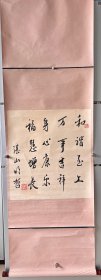 和谐至上
万事吉祥
身心康乐
福慧增长